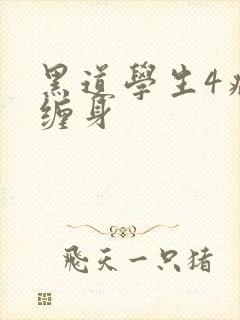 黑道學生4
缠身
飛天一只猪